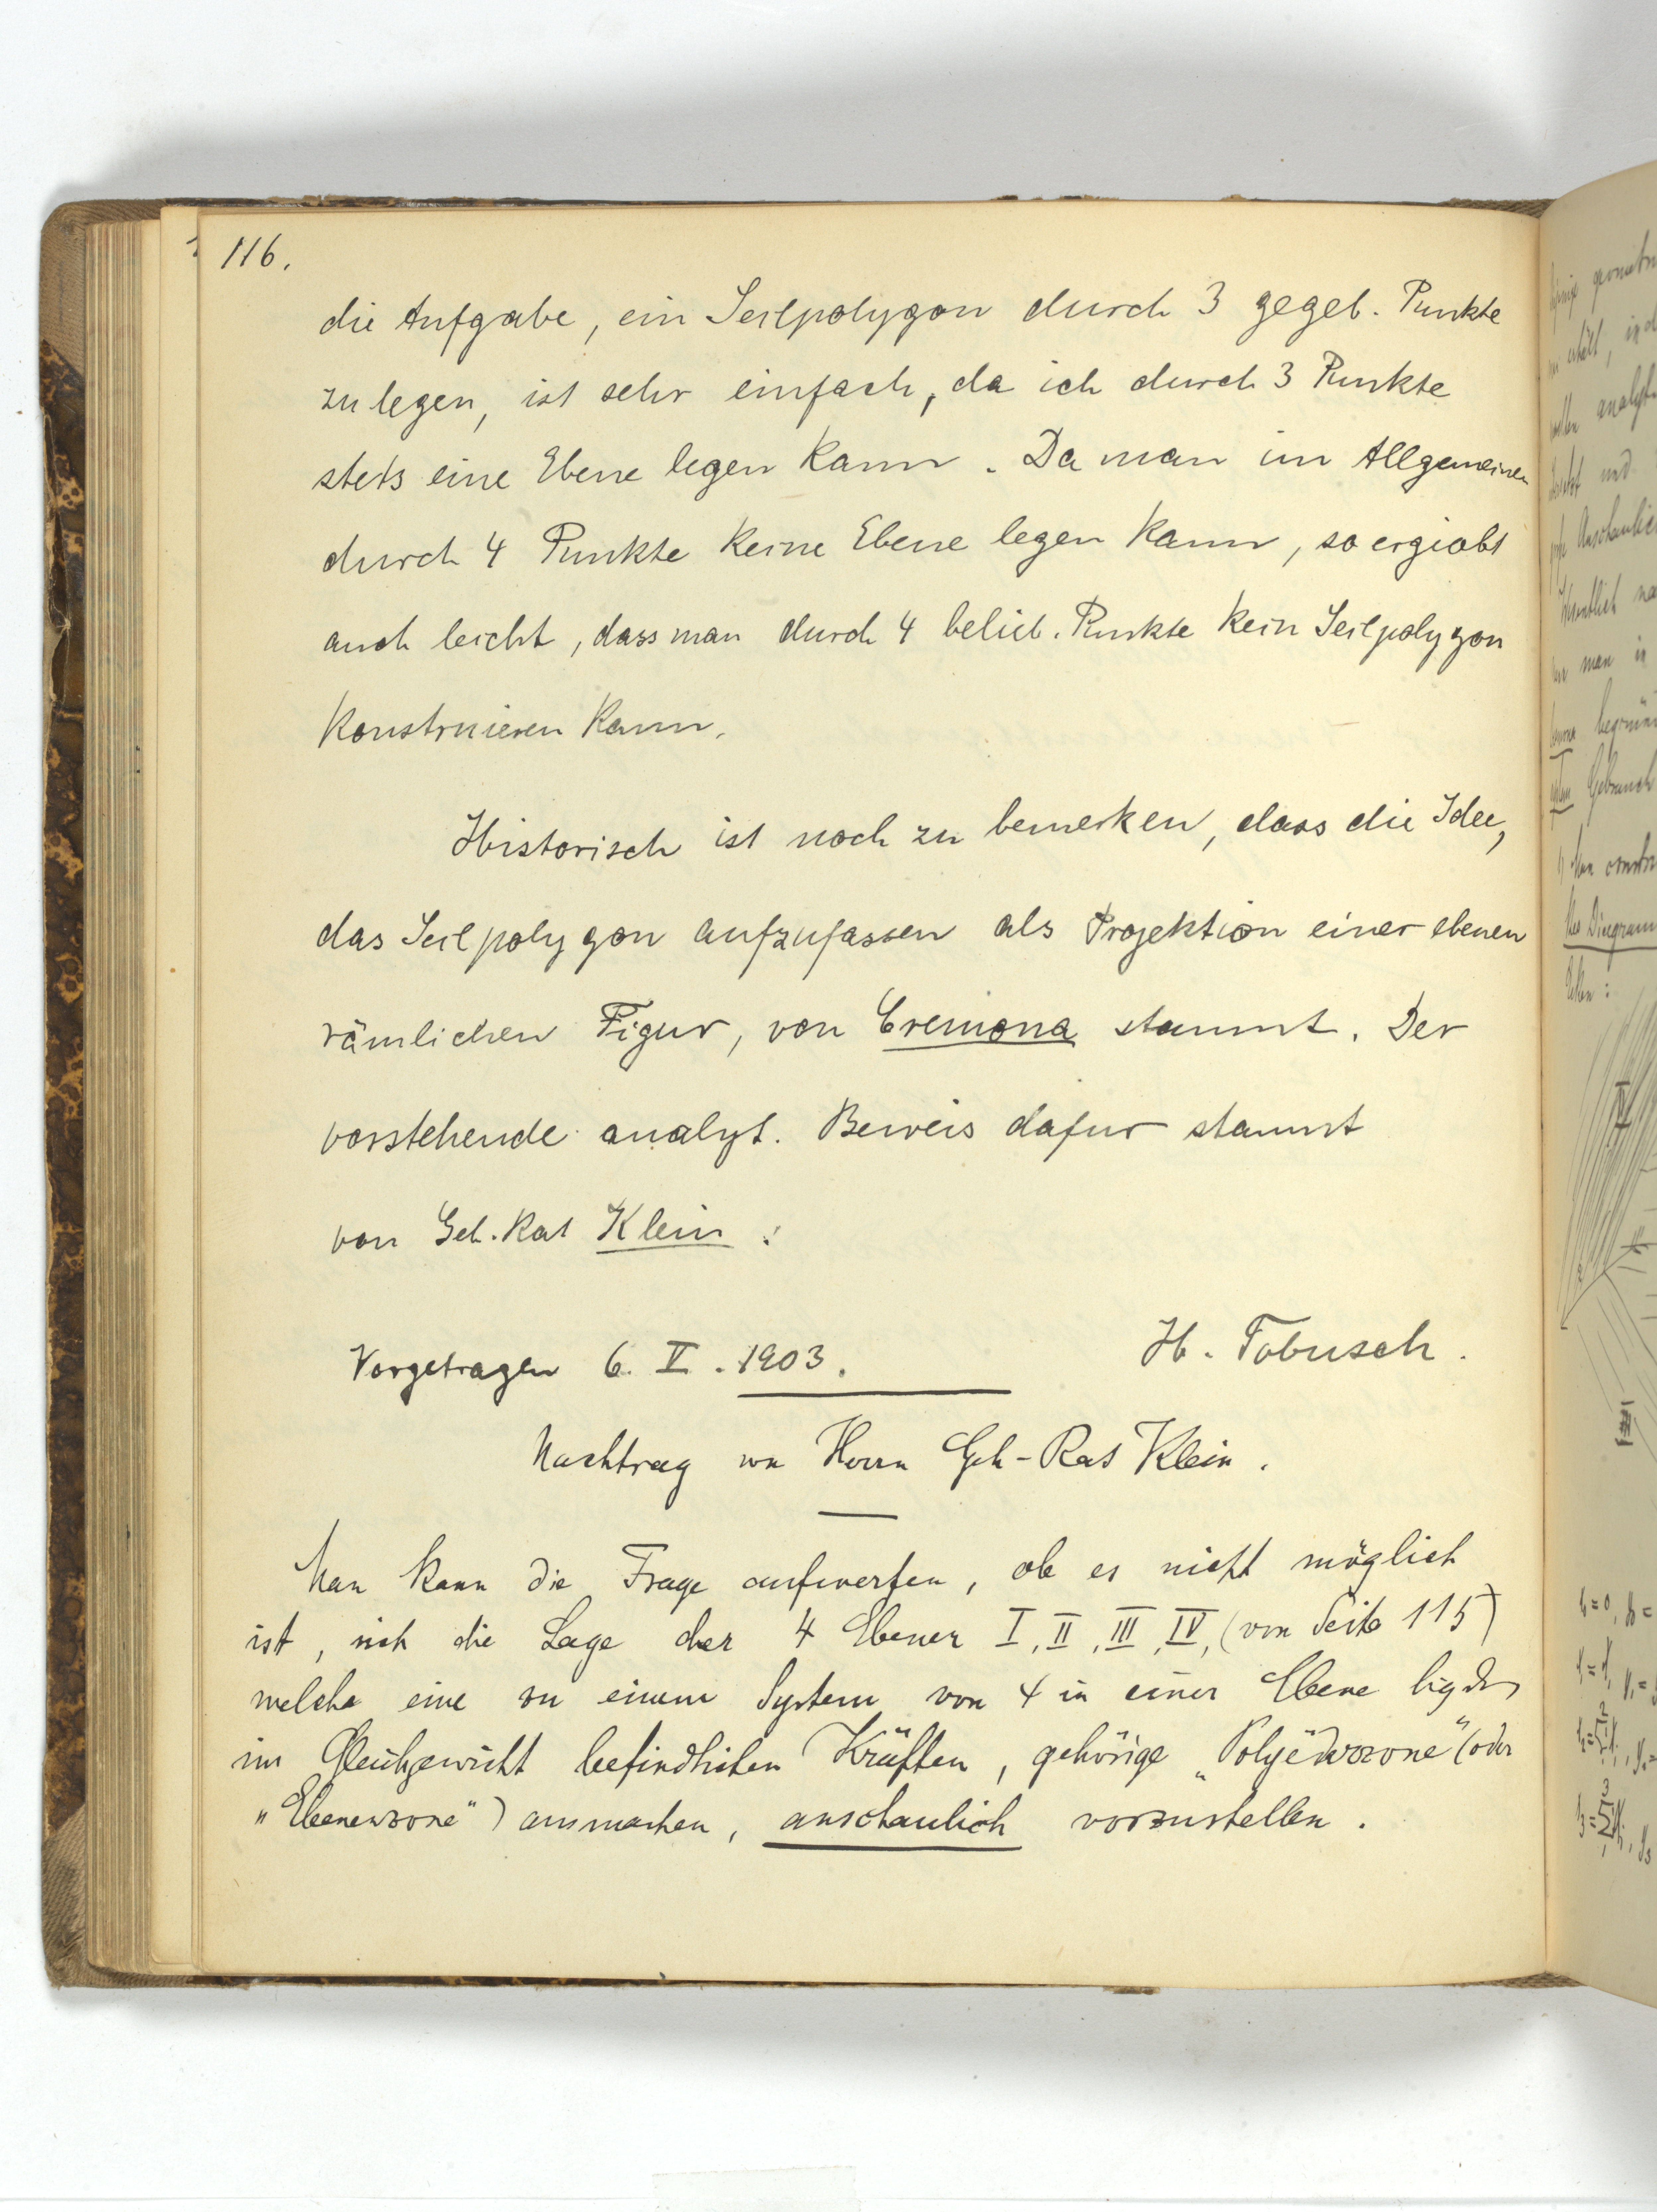 116.
die Aufgabe, ein Seilpolygon durch 3 gegeb. Punkte
zu legen, ist sehr einfach, da ich durch 3 Punkte
stets eine Ebene legen kann. Da man im Allgemeinen
durch 4 Punkte keine Ebene legen kann, so ergiebt
auch leicht, dass man durch 4 belieb. Punkte kein Seilpolygon
konstruieren kann.
Historisch ist noch zu bemerken, dass die Idee,
das Seilpolygon aufzufassen als Projektion einer ebenen
rämlichen Figur, von Cremona stammt. Der
vorstehende analyt. Beweis dafur stammt
von Geh. Rat Klein.
Vorgetragen 6. V. 1903. H. Tobusch.
Nachtrag von Herrn Geh-Rat Klein.
Man kann die Frage aufwerfen, ob es nicht möglich
ist, sich die Lage der 4 Ebenen I, II, III, IV, (von Seite 115)
welche eine zu einem System von 4 in einer Ebene
im Gleichgewicht befindlichen Kräften, gehörige „Polyëderzone" (oder
„Ebenenzone") ausmachen, anschaulich vorzustellen.